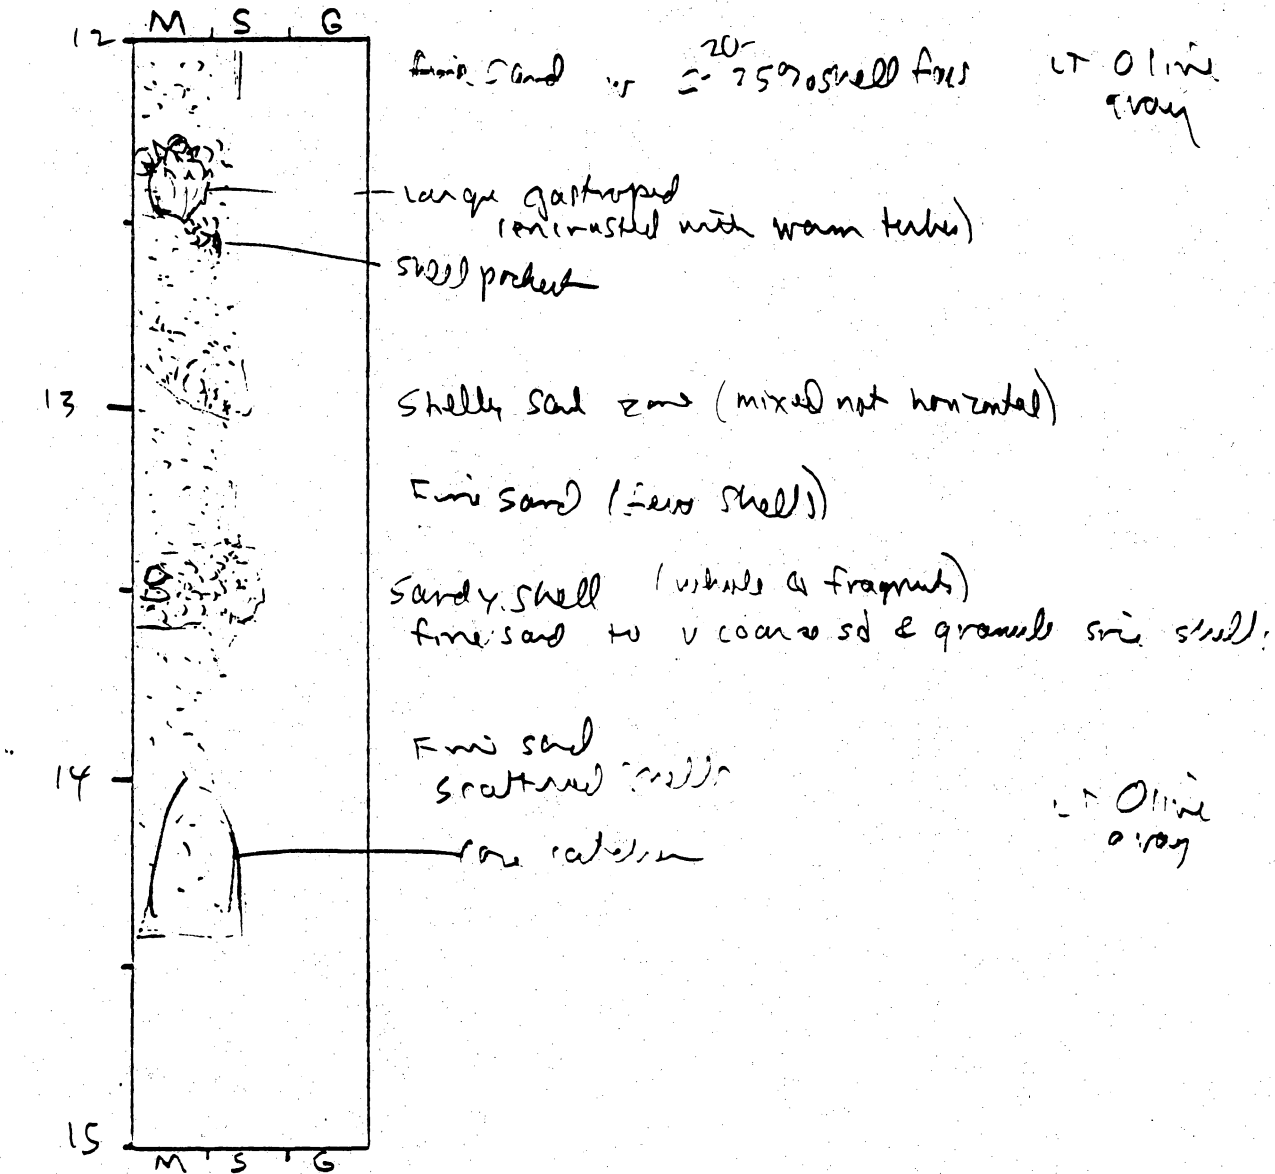 M S G
12
fine sand w ≈ 20-25% shell frags LT Olive
gray
large gastropod
(encrusted with worm tubes)
shell pocket
13
Shelly sand zone (mixed not horizontal)
Fine sand (few shells)
Sandy shell (whole & fragments)
fine sand to v coarse sd & granule size shell.
Fine sand
14
scattered shells
LT Olive
gray
core catcher
15
M S G